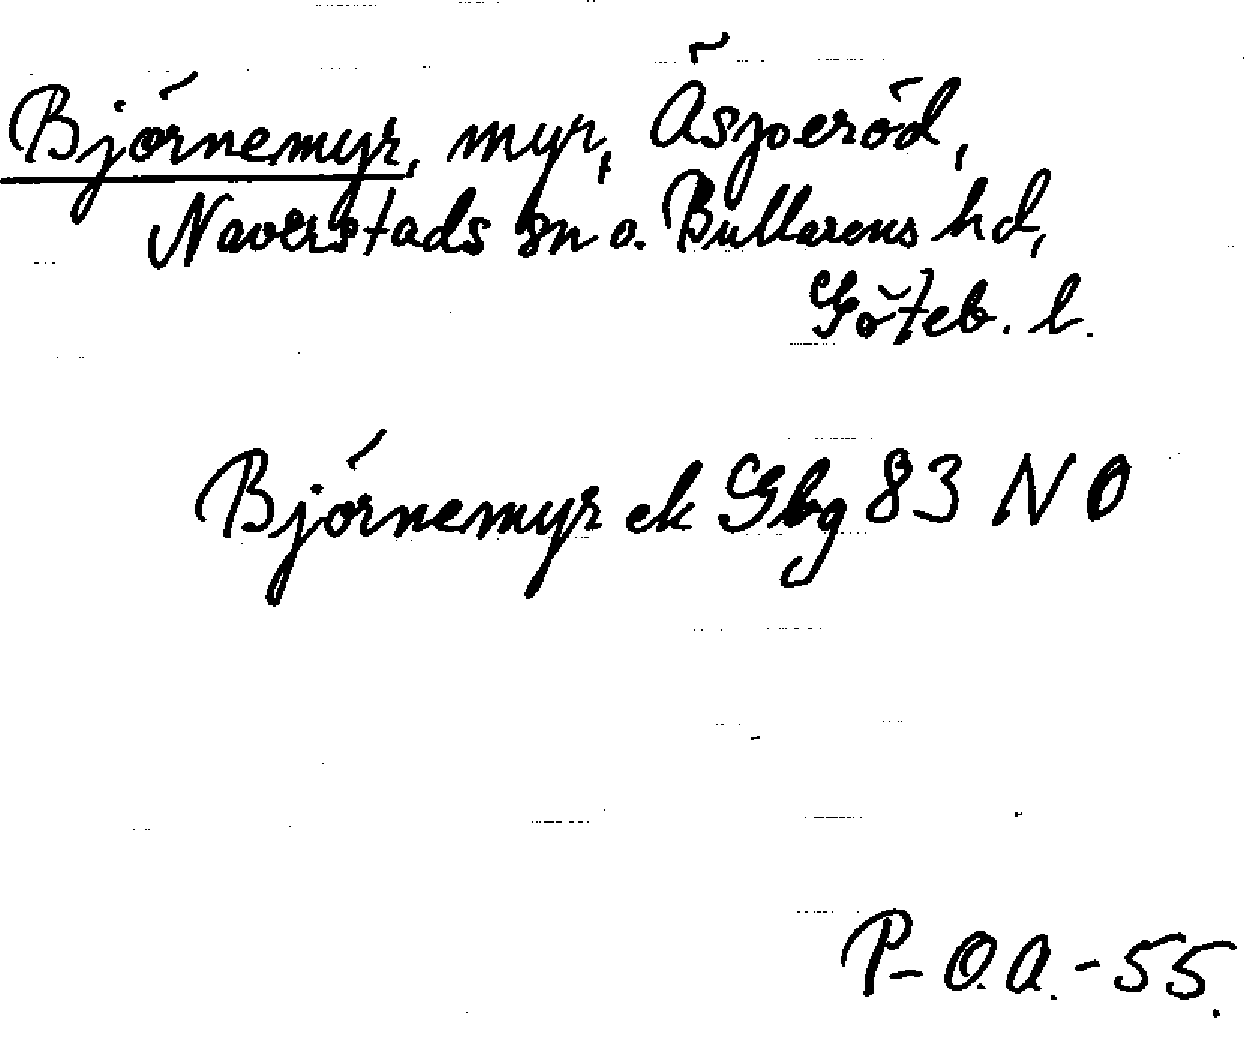 Björnemyr, myr, Äsperöd,
Naverstads sn o. Bullarens hd,
Göteb. l.
Björnemyr ek Gbg 83 NO
P-O.A.-55.